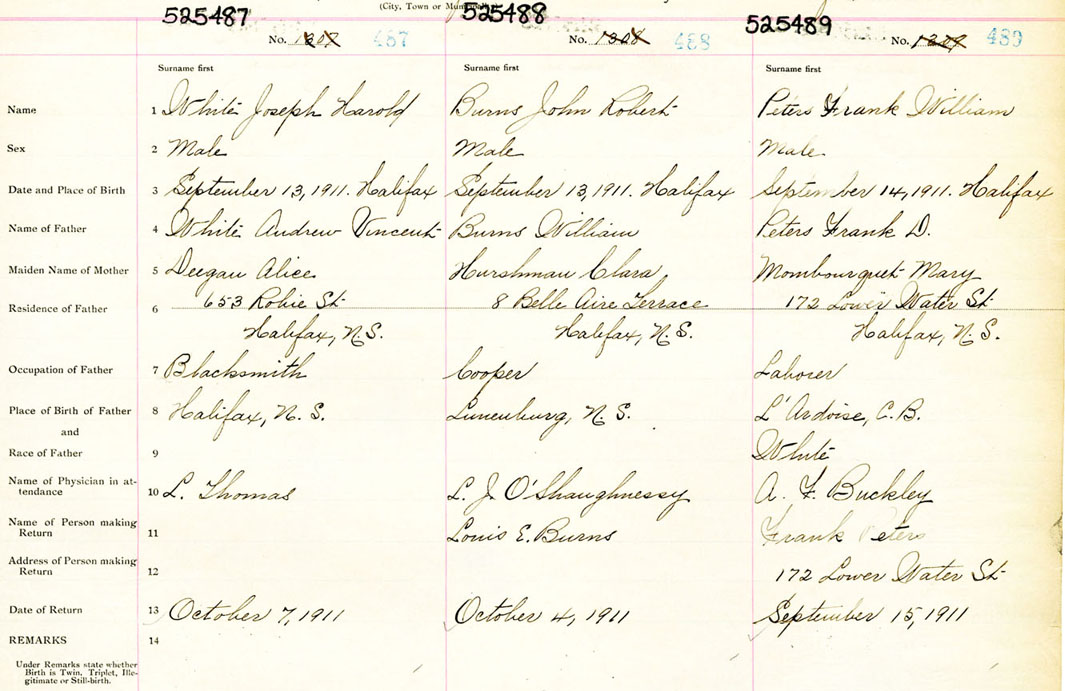 (City, Town or
525487 525488 525489
No. 1307 487 No. 1308 488 No. 1309 489
Surname first Surname first Surname first
Name 1 White Joseph Harold Burns John Robert Peters Frank William
Sex 2 Male Male Male
Date and Place of Birth 3 September 13, 1911. Halifax September 13, 1911. Halifax September 14, 1911. Halifax
Name of Father 4 White Andrew Vincent Burns William Peters Frank D.
Maiden Name of Mother 5 Deegan Alice Hurshman Clara Mombourquet Mary
Residence of Father 6 653 Robie St 8 Belle Aire Terrace 172 Lower Water St
Halifax, N.S. Halifax, N.S. Halifax, N.S.
Occupation of Father 7 Blacksmith Cooper Laborer
Place of Birth of Father 8 Halifax, N.S. Lunenburg, N.S. L'Ardoise, C.B.
and
Race of Father 9 White
Name of Physician in at-
tendance 10 L. Thomas L. J. O'Shaughnessy A. F. Buckley
Name of Person making
Return 11 Louis E. Burns Frank Peters
Address of Person making
Return 12 172 Lower Water St
Date of Return 13 October 7, 1911 October 4, 1911 September 15, 1911
REMARKS 14
Under Remarks state whether
Birth is Twin. Triplet, Ille-
gitimate or Still-birth.